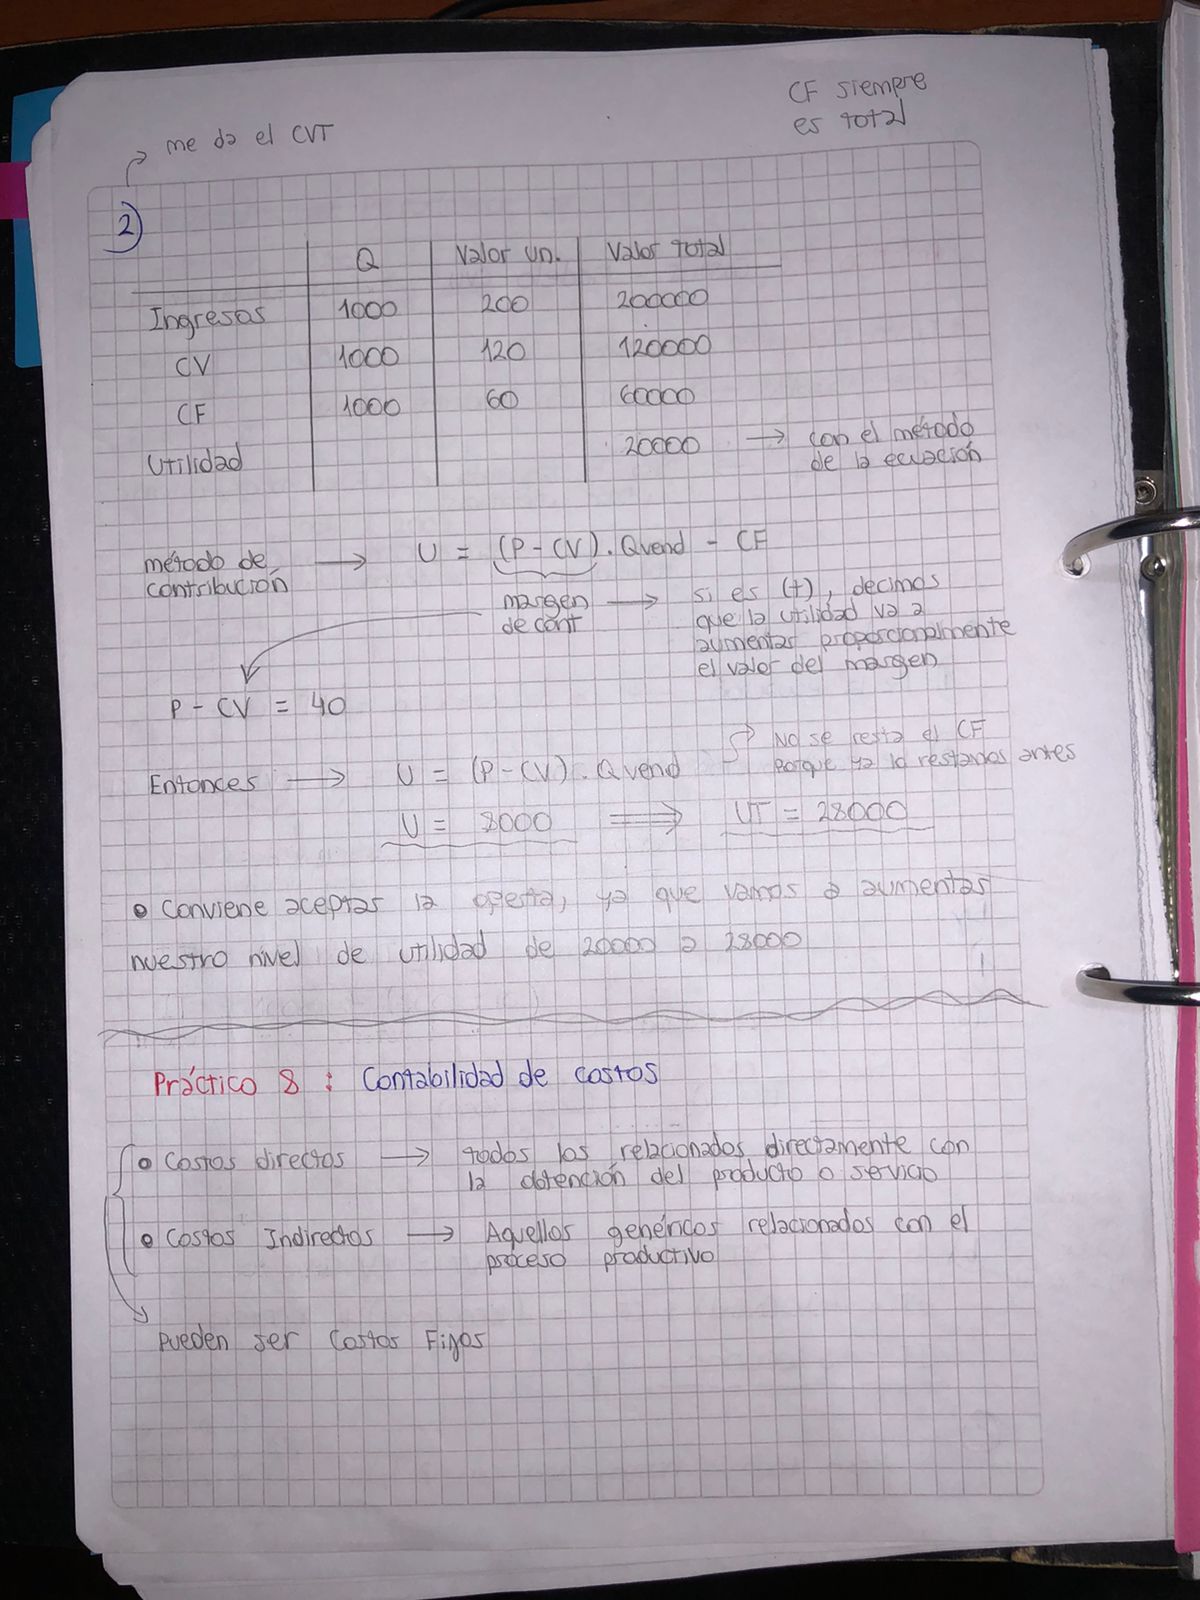 CF siempre
es total
me da el CVT
2)
Q Valor un. Valor total
Ingresos 1000 200 200000
CV 1000 120 120000
CF 1000 60 60000
Utilidad 20000 → con el método
de la ecuación
método de
contribución → U = (P - CV). Qvend - CF
margen
de cont → si es (+), decimos
que la utilidad va a
aumentar proporcionalmente
el valor del margen
P - CV = 40
No se resta el CF
porque ya lo restamos antes
Entonces → U = (P - CV). Qvend
U = 8000 ⟹ UT = 28000
• Conviene aceptar la oferta, ya que vamos a aumentar
nuestro nivel de utilidad de 20000 a 28000
Práctico 8 : Contabilidad de costos
• Costos directos → todos los relacionados directamente con
la obtención del producto o servicio
• Costos Indirectos → Aquellos genéricos relacionados con el
proceso productivo
Pueden ser Costos Fijos